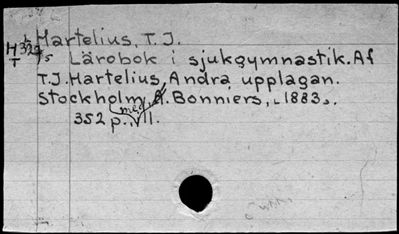 Hartelius, T.J.
Lärobok i sjukgymnastik. Af
T.J. Hartelius, Andra upplagan.
Stockholm, A. Bonniers, 1883.
352 p. ill.